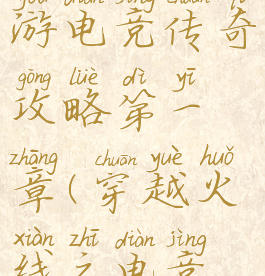 游电竞传奇
gōng lüè dì yī
攻略第一
zhāng chuān yuè huǒ
章(穿越火
xiàn zhī diàn jìng
线之电竞